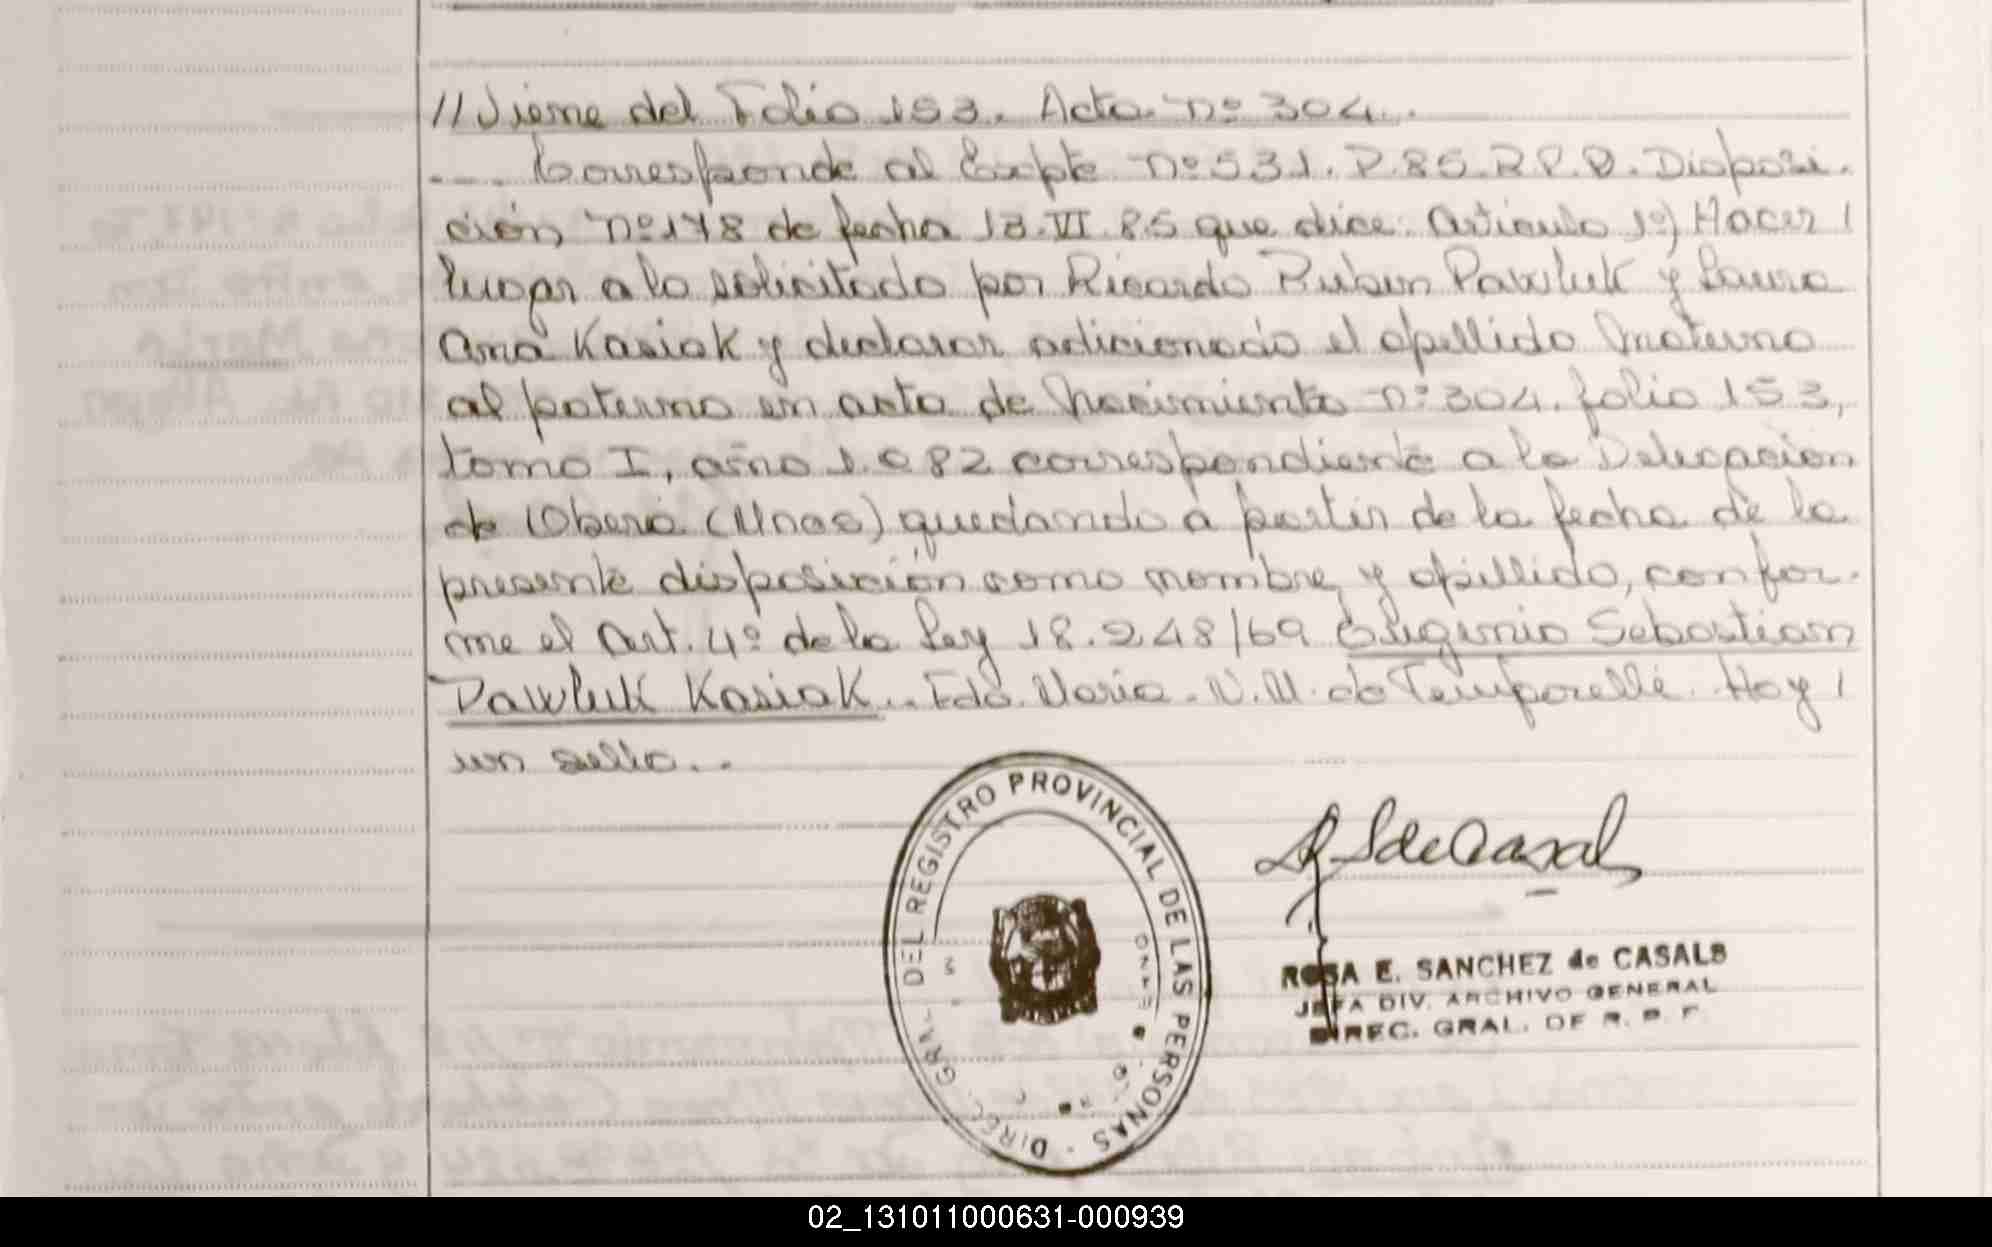 // Viene del Folio 153. Acta nº 304..
.... Corresponde al Expte nº 531. P. 85. R.P.P. Disposi.
ción nº 178 de fecha 13. VI. 85 que dice: Articulo 1º) Hacer /
lugar a lo solicitado por Ricardo Ruben Pawluk y Laura
Ana Kasiak y declarar adicionado el apellido materno
al paterno en acta de Nacimiento nº 304. folio 153,
tomo I, año 1.982 correspondiente a la Delegación
de Oberá (Mnes) quedando a partir de la fecha de la
presente disposición como nombre y apellido, confor-
me el Art. 4º de la Ley 18.248/69 Eugenio Sebastian
Pawluk Kasiak.. Fdo. Maria. N. M. de Temporelli. Hay /
un sello...
DIREC. GRAL. DEL REGISTRO PROVINCIAL DE LAS PERSONAS
ROSA E. SANCHEZ de CASALS
JEFA DIV. ARCHIVO GENERAL
DIREC. GRAL. DE R. P. P.
02_131011000631-000939